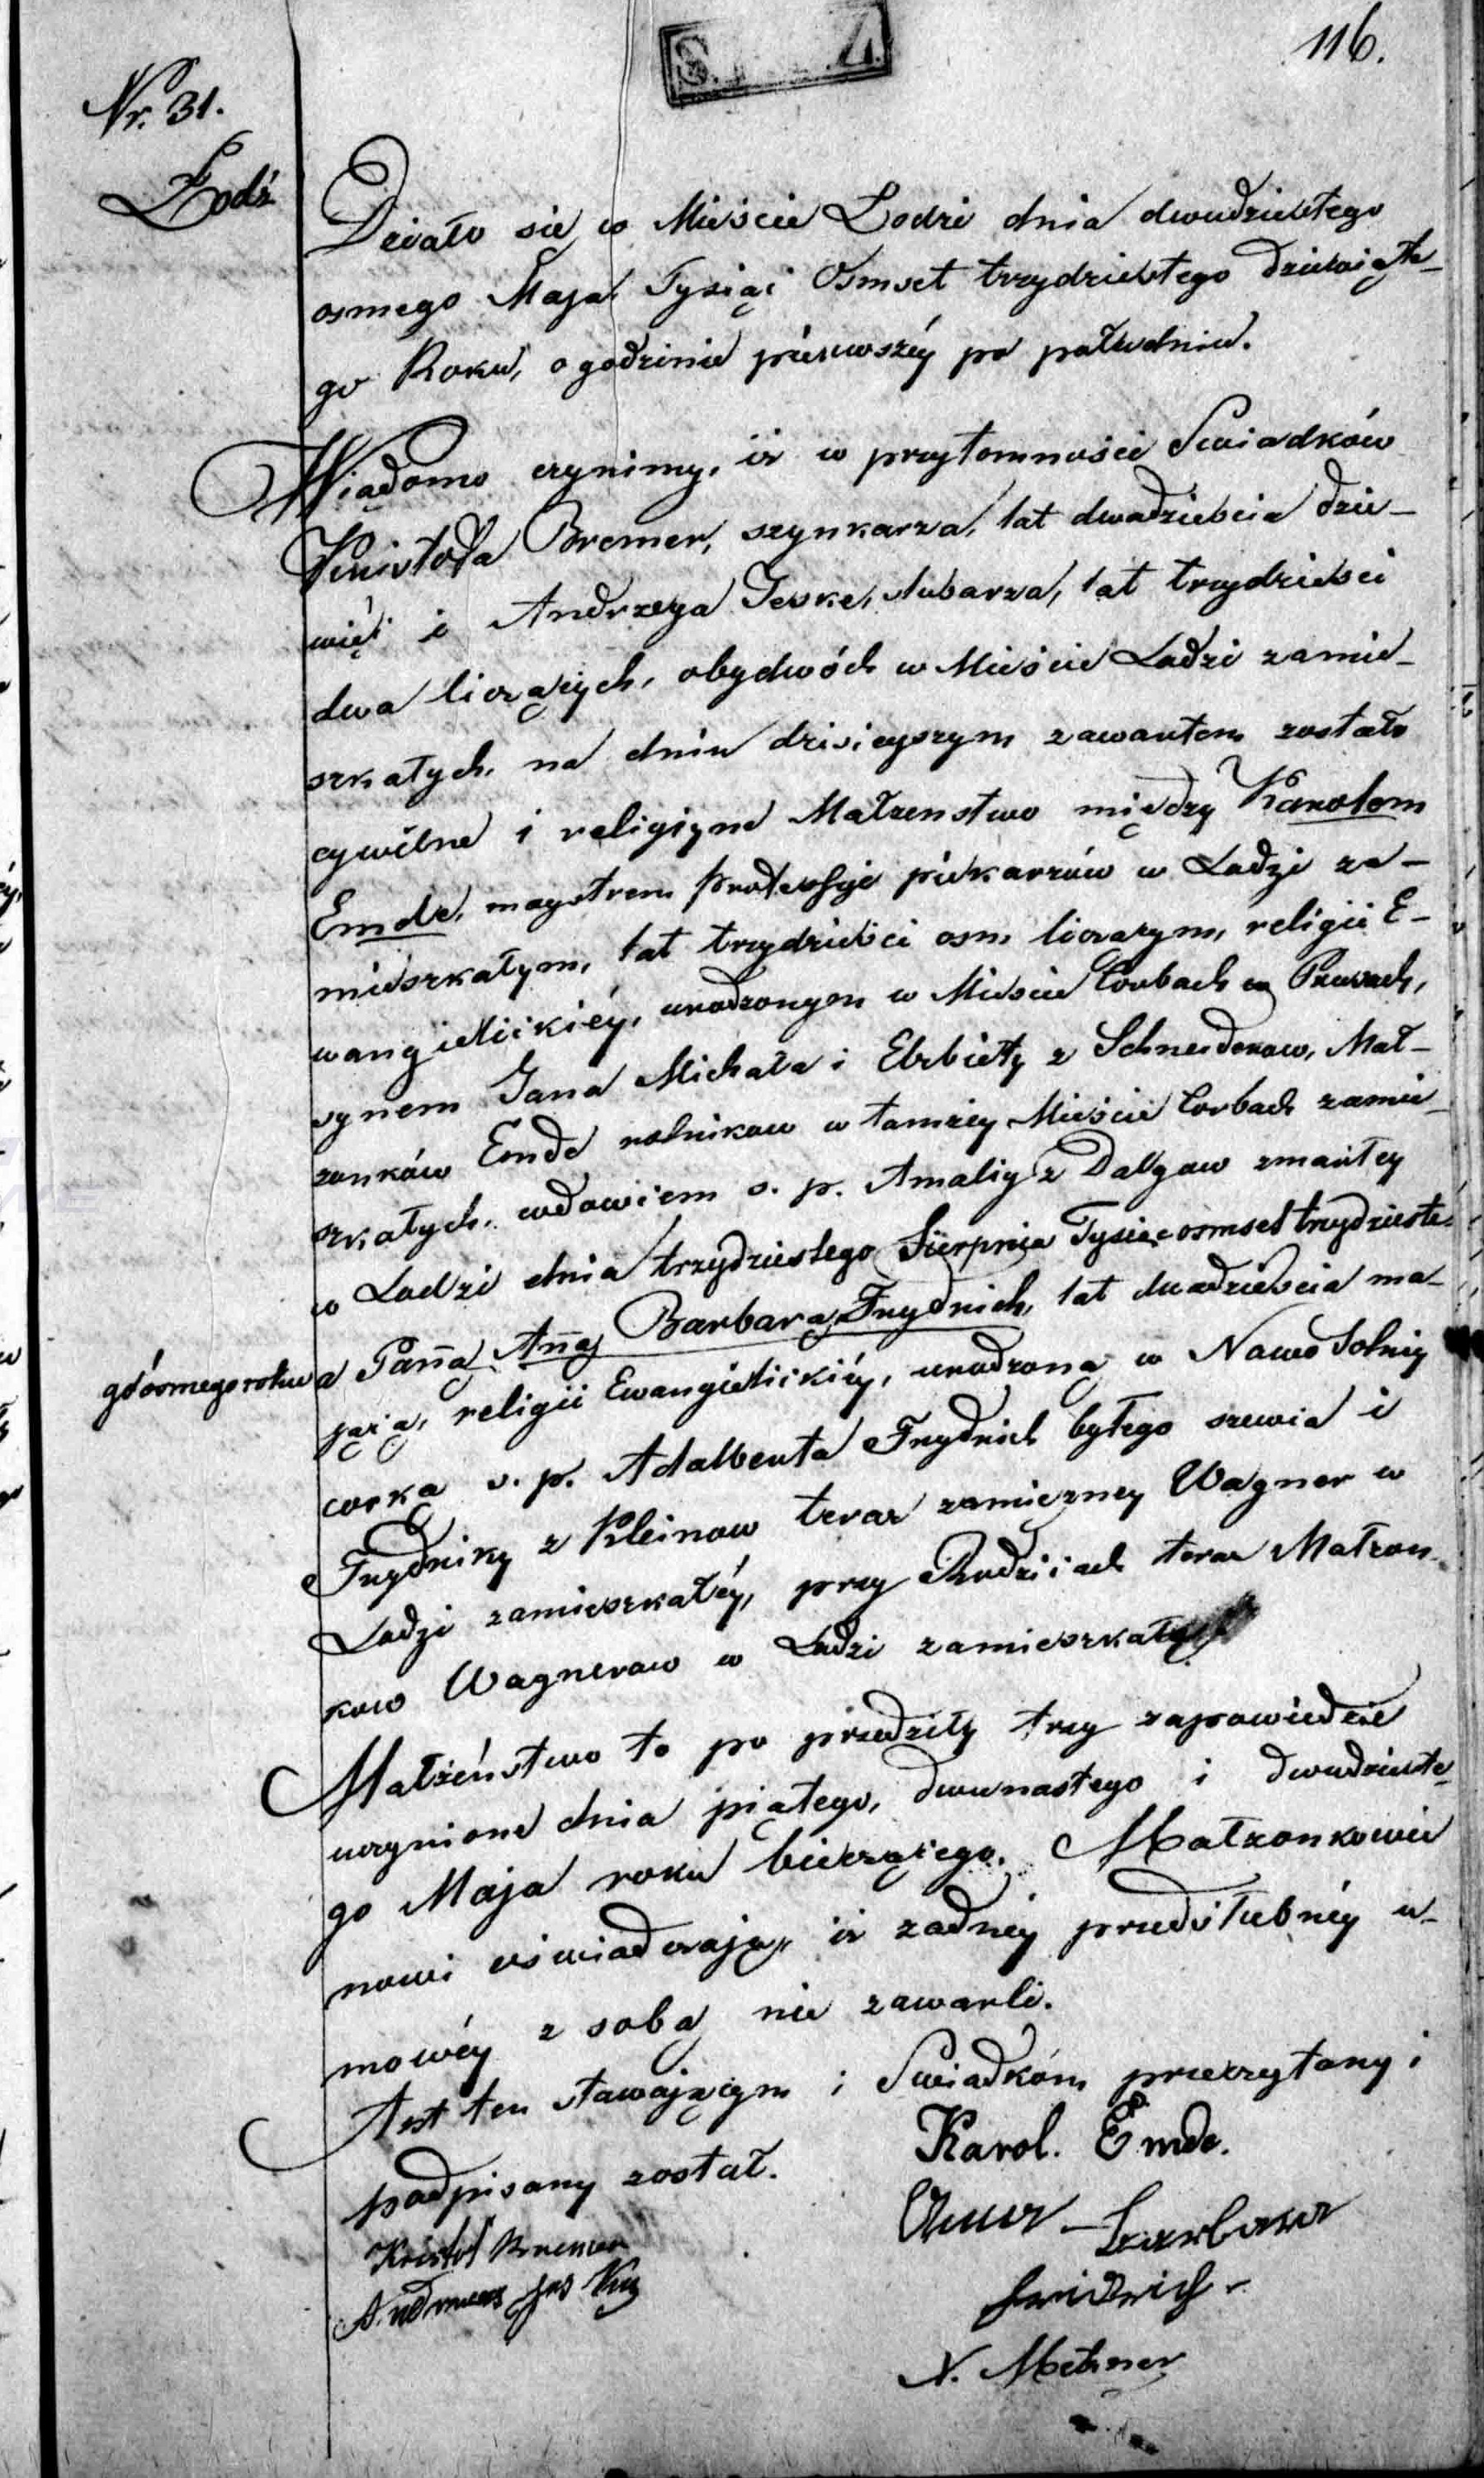 116.
Nr. 31.
Łodź
Działo się w Mieście Lodzi dnia dwudziestego
osmego Maja Tysiąc Osmset trzydziestego dziewiąte-
go Roku, o godzinie pierwszéy po południu.
Wiadomo czynimy, iż w przytomności Swiadków
Kristofa Bremer, szynkarza, lat dwadzieścia dzie-
więć i Andrzeya Jeske, stubarza, lat trzydzieści
dwa liczących, obydwóch w Mieście Lodzi zamie-
szkałych, na dniu dzisieyszym zawartem zostało
cywilne i religiyne Małżenstwo między Karolem
Emde, maystrem professyi piekarzów w Lodzi za-
mieszkałym, lat trzydzieści osm liczącym, religii E-
wangielickiéy, urodzonym w Mieście Corbach w Prusach,
synem Jana Michała i Elzbiety z Schneiderow, Mał-
zonków Emde rolnikow w tamżey Mieście Corbach zamie-
szkałych, wdowcem s. p. Amaliy z Dalgow zmarłey
w Lodzi dnia trzydziestego Sierpnia Tysiąc osmset trzydzieste-
go ósmego roku a Pañą Añą Barbarą Frydrich, lat dwadzieścia ma-
jącą, religii Ewangielickiéy, urodzoną w Nowo Solniy
corką s. p. Adalberta Frydrich byłego szewca i
Frydriky z Kleinow teraz zamęzney Wagner w
Lodzi zamieszkałéy, przy Rodzicach teraz Małzon-
kow Wagnerow w Lodzi zamieszkałą
Małżeństwo to po przedziły trzy zapowiedzie
uczynione dnia piątego, dwunastego i dwudzieste-
go Maja roku bieżącego. Małzonkowie
nowi oświadczają, iż zadnéy przedślubnéy u-
mowéy z sobą nie zawarli.
Akt ten stawającym i Swiadkóm przeczytany i
podpisany został.
Karol. Emde.
Kristof Bremer
Anna Barbara
Fridrich
N. Metzner